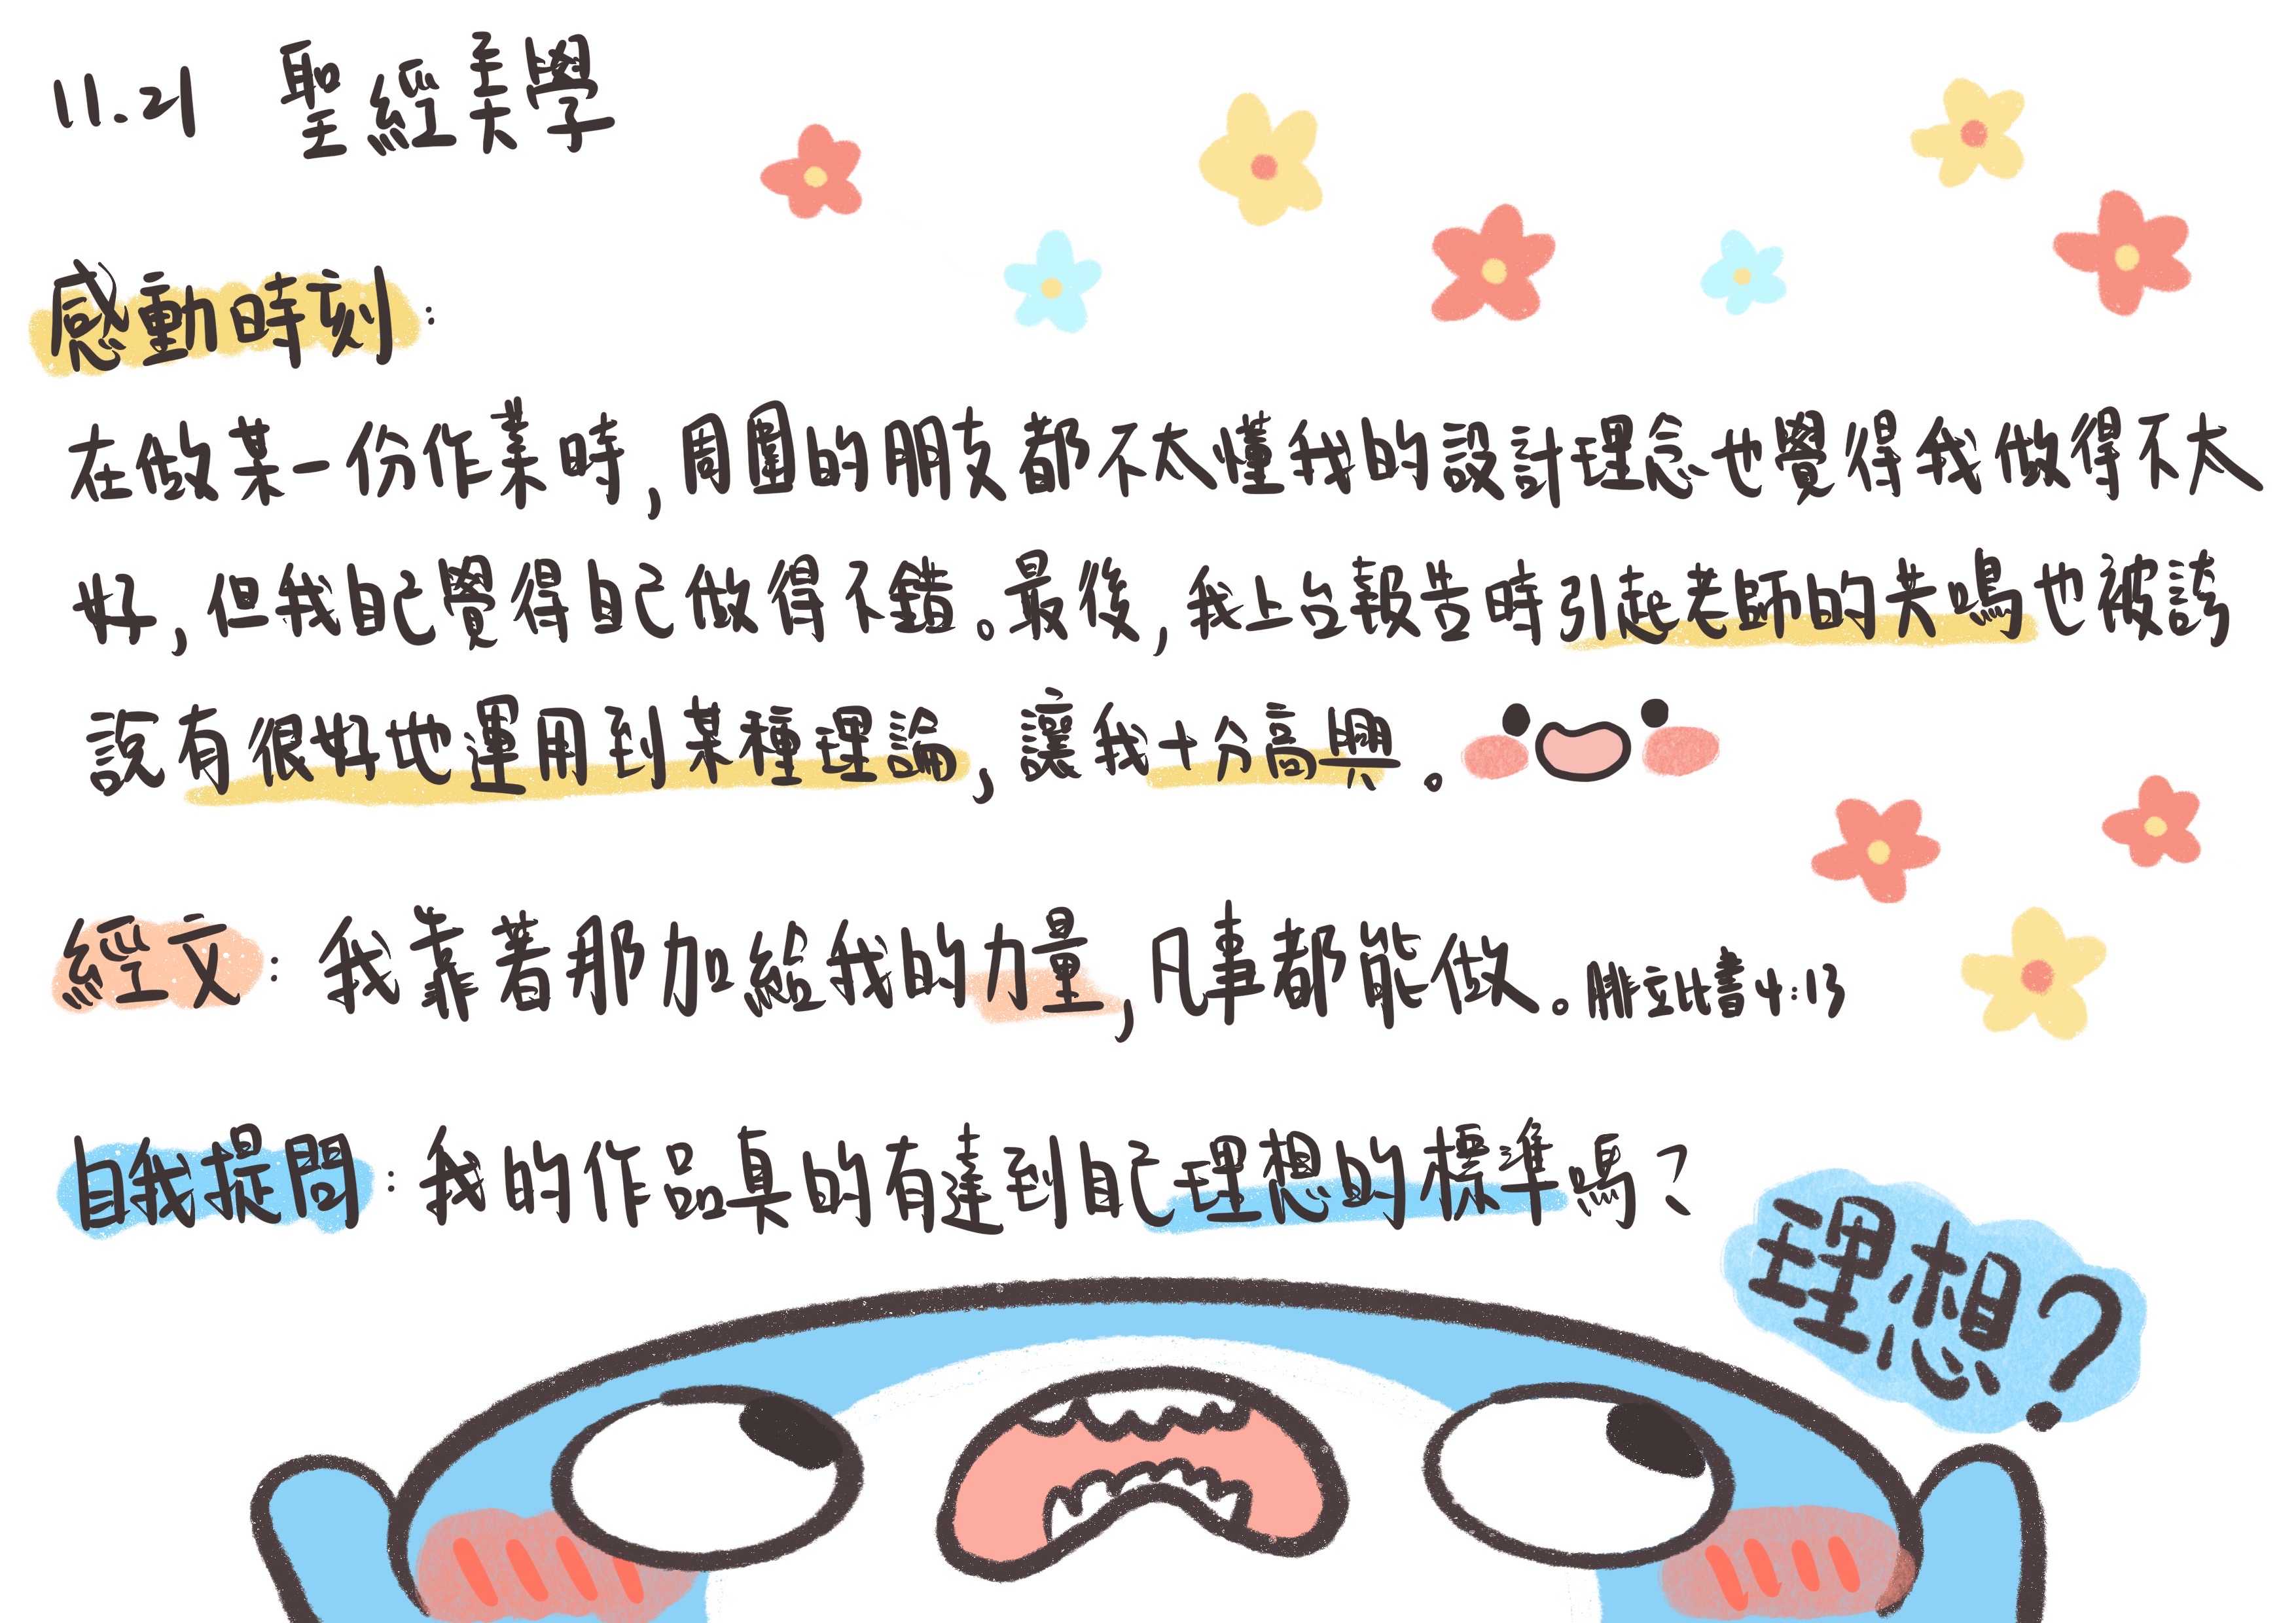 11.21 聖經美學
感動時刻:
在做某一份作業時,周圍的朋友都不太懂我的設計理念也覺得我做得不太
好,但我自己覺得自己做得不錯。最後,我上台報告時引起老師的共鳴也被誇
說有很好地運用到某種理論,讓我十分高興。
經文:我靠著那加給我的力量,凡事都能做。腓立比書4:13
自我提問:我的作品真的有達到自己理想的標準嗎?
理想?